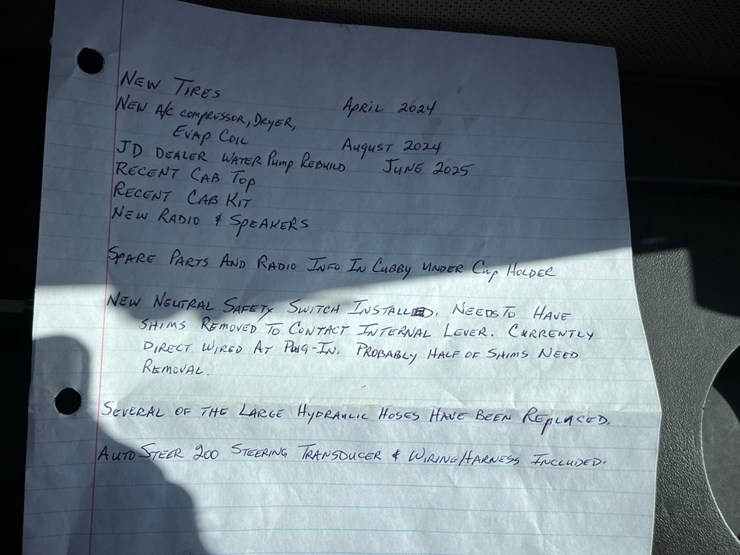 NEW TIRES APRIL 2024
NEW A/C COMPRESSOR, DRYER,
EVAP COIL AUGUST 2024
JD DEALER WATER PUMP REBUILD JUNE 2025
RECENT CAB TOP
RECENT CAB KIT
NEW RADIO & SPEAKERS
SPARE PARTS AND RADIO INFO IN CUBBY UNDER CUP HOLDER
NEW NEUTRAL SAFETY SWITCH INSTALLED. NEEDS TO HAVE
SHIMS REMOVED TO CONTACT INTERNAL LEVER. CURRENTLY
DIRECT WIRED AT PLUG-IN. PROBABLY HALF OF SHIMS NEED
REMOVAL.
SEVERAL OF THE LARGE HYDRAULIC HOSES HAVE BEEN REPLACED.
AUTO STEER 200 STEERING TRANSDUCER & WIRING HARNESS INCLUDED.